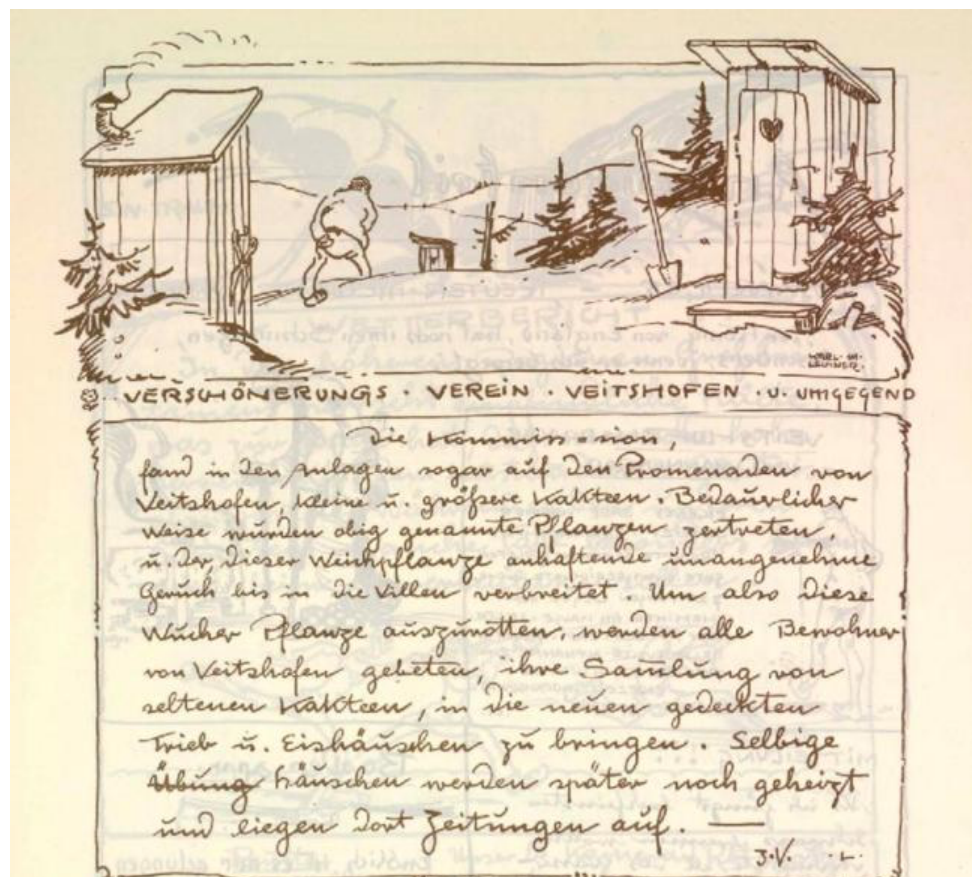 VERSCHÖNERUNGS · VEREIN · VEITSHOFEN · U. UMGEGEND
Die Kommission,
fand in den Anlagen sogar auf den Promenaden von
Veitshofen, kleine u. größere Kakteen. Bedauerlicher
Weise wurden obig genannte Pflanzen zertreten,
u. der, dieser Weichpflanze anhaftende unangenehme
Geruch bis in die Villen verbreitet. Um also diese
Wucher Pflanze auszurotten, werden alle Bewohner
von Veitshofen gebeten, ihre Sam̄lung von
seltenen Kakteen, in die neuen gedeckten
Trieb u. Eishäuschen zu bringen. Selbige
Übung häuschen werden später noch geheizt
und liegen dort Zeitungen auf. —
J.V.